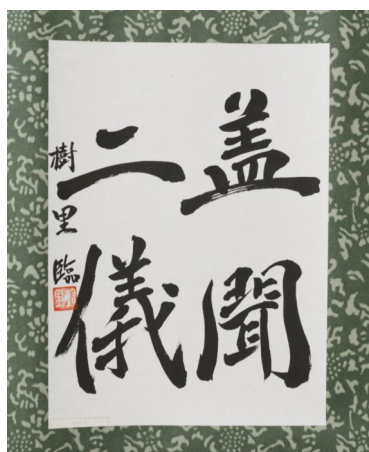 盖聞
二儀
樹里臨